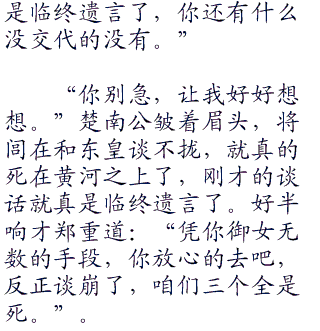 是临终遗言了，你还有什么
没交代的没有。”
“你别急，让我好好想
想。”楚南公皱着眉头，将
闾在和东皇谈不拢，就真的
死在黄河之上了，刚才的谈
话就真是临终遗言了。好半
响才郑重道：“凭你御女无
数的手段，你放心的去吧，
反正谈崩了，咱们三个全是
死。”。